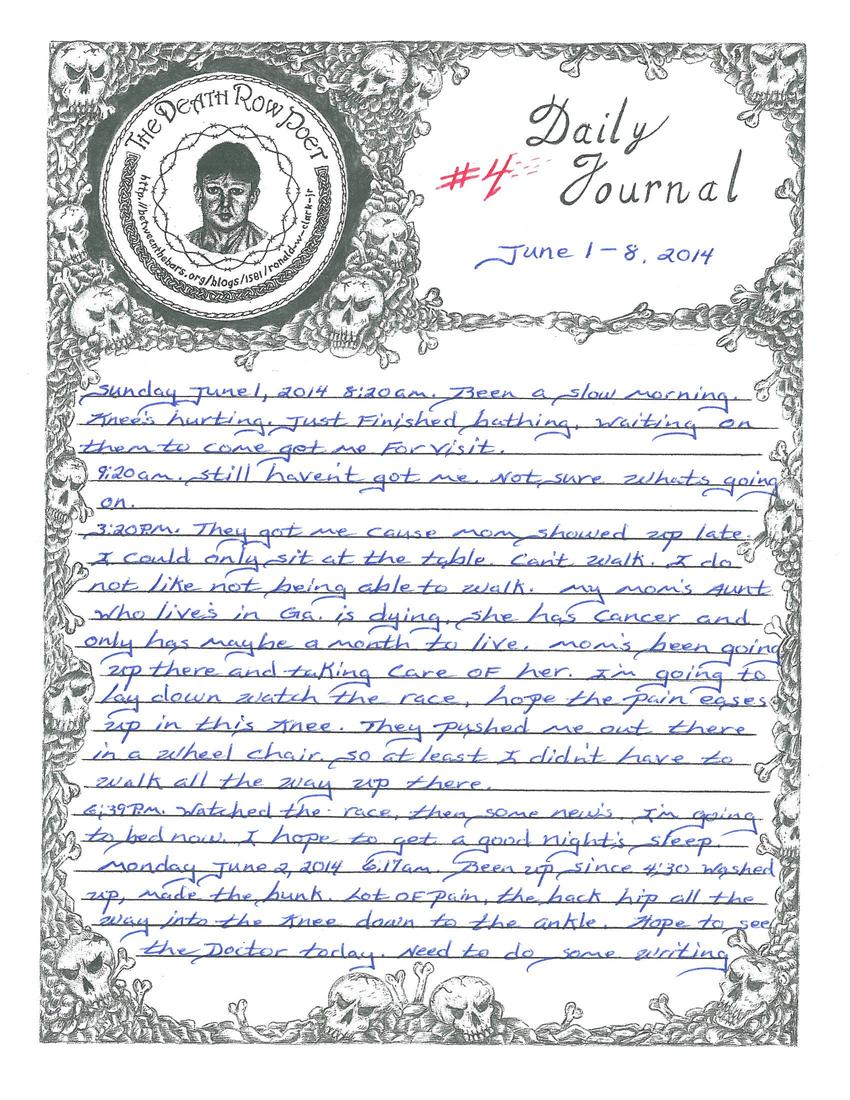 THE DEATH ROW POET
http://betweenthebars.org/blogs/1581/ronald-w-clark-jr
Daily
#4
Journal
June 1-8, 2014
Sunday June 1, 2014 8:20am. Been a slow morning.
Knee's hurting. Just Finished bathing. Waiting on
them to come get me For visit.
9:20am. still haven't got me. Not sure whats going
on.
3:20P.M. They got me cause mom showed up late.
I could only sit at the table. Can't walk. I do
not like not being able to walk. My mom's Aunt
who live's in Ga. is dying. she has cancer and
only has maybe a month to live. mom's been going
up there and taking care of her. I'm going to
lay down watch the race, hope the pain eases
up in this Knee. They pushed me out there
in a wheel chair, so at least I didn't have to
walk all the way up there.
6:39P.M. Watched the race, then some new's. I'm going
to bed now. I hope to get a good night's sleep.
Monday June 2, 2014 6:17am. Been up since 4:30 washed
up, made the bunk. Lot OF pain, the back hip all the
way into the Knee down to the ankle. Hope to see
the Doctor today. Need to do some writing